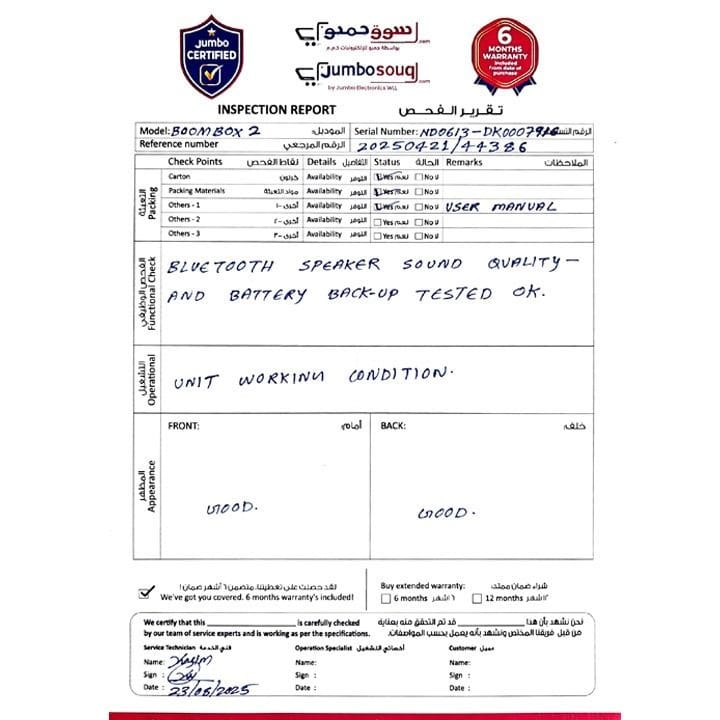 Jumbo
CERTIFIED
سوق جمبو.com
بواسطة جمبو للإلكترونيات ذ.م.م
Jumbosouq.com
by Jumbo Electronics WLL
6
MONTHS
WARRANTY
Included
from date of
purchase
INSPECTION REPORT تقرير الفحص
Model: BOOMBOX 2 الموديل: Serial Number: ND0613-DK000 الرقم التسلسلي
Reference number الرقم المرجعي 20250421/44386
Check Points نقاط الفحص Details التفاصيل Status الحالة Remarks الملاحظات
التعبئة Packing
Carton كرتون Availability التوفر Yes نعم No لا
Packing Materials مواد التعبئة Availability التوفر Yes نعم No لا
Others - 1 أخرى -١ Availability التوفر Yes نعم No لا USER MANUAL
Others - 2 أخرى -٢ Availability التوفر Yes نعم No لا
Others - 3 أخرى -٣ Availability التوفر Yes نعم No لا
الفحص الوظيفي Functional Check
BLUETOOTH SPEAKER SOUND QUALITY -
AND BATTERY BACK-UP TESTED OK.
التشغيل Operational
UNIT WORKING CONDITION.
المظهر Appearance
FRONT: أمام: BACK: خلف:
GOOD. GOOD.
لقد حصلت على تغطيتنا. متضمن ٦ أشهر ضمان!
We've got you covered. 6 months warranty's included!
Buy extended warranty: شراء ضمان ممتد:
6 months ٦ أشهر 12 months ١٢ شهر
We certify that this ____ is carefully checked
by our team of service experts and is working as per the specifications.
نحن نشهد بأن هذا ____ قد تم التحقق منه بعناية
من قبل فريقنا المختص ونشهد بأنه يعمل بحسب المواصفات.
Service Technician فني الخدمة Operation Specialist أخصائي التشغيل Customer عميل
Name: Name: Name:
Sign : Sign : Sign :
Date : 23/08/2025 Date : Date :